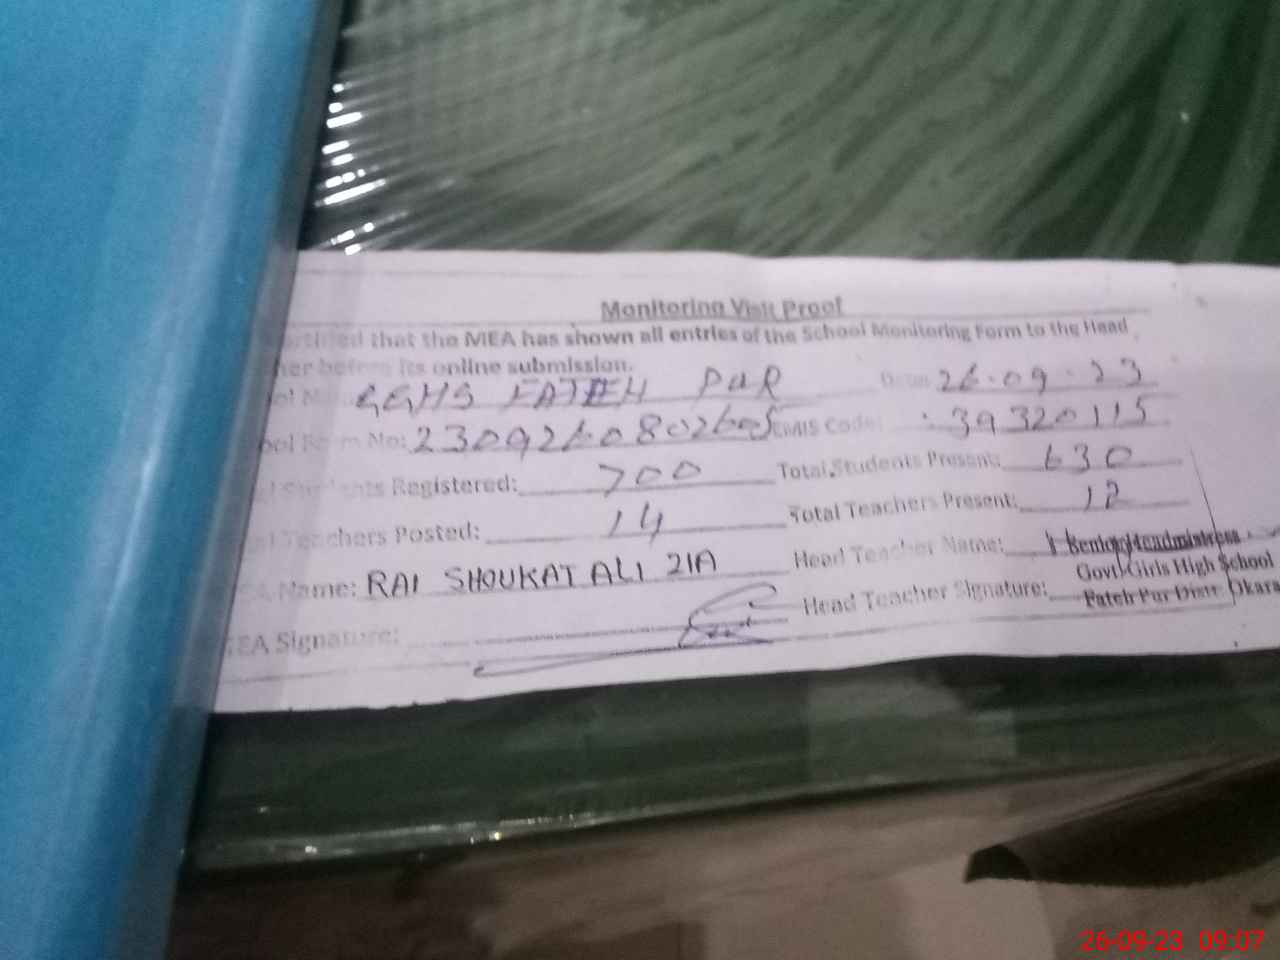 Monitoring Visit Proof
that the MEA has shown all entries of the School Monitoring Form to the Head
before its online submission.
GGHS FATEH PUR Date: 26-09-23
No: EMIS Code: 39320115
Students Registered: 700 Total Students Present: 630
Teachers Posted: 14 Total Teachers Present: 12
Name: RAI SHOUKAT ALI ZIA Head Teacher Name: Senior Headmistress
Govt. Girls High School
MEA Signature: Head Teacher Signature: Fateh Pur Distt. Okara
26-09-23 09:07